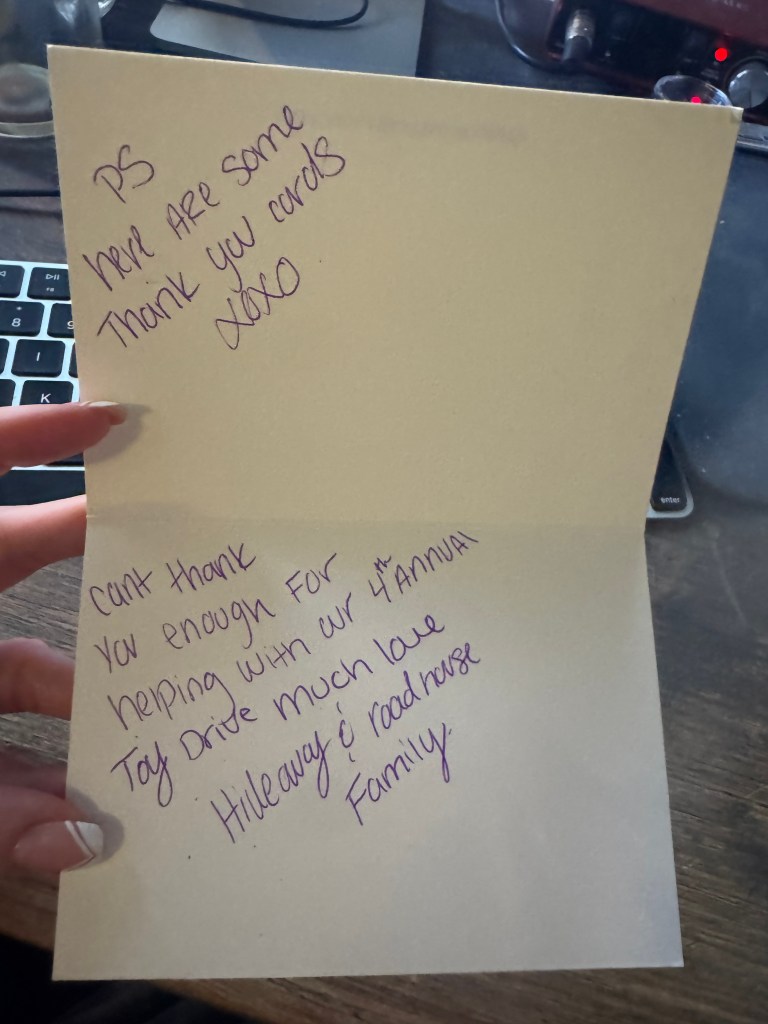 PS
here ARE some
Thank you cards
xoxo
cant thank
you enough For
helping with our 4th ANNUAL
Toy Drive much love
Hideaway & roadhouse
Family.
8
9
I
K
enter